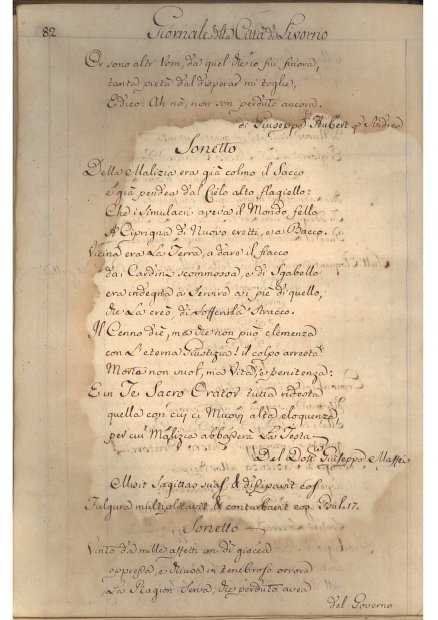 82 Giornale della Città di Livorno
Or sono altr' Uom, da quel che io fui finora,
tanta pietà dal disperar mi toglie,
E dico: Ah nò, non son perduto ancora.
di Giuseppe Aubert qm Andrea
Sonetto
Della Malizia era già colmo il Sacco
e già pendea dal Cielo alto flagiello:
Che i Simulacri aveva il Mondo fello
A' Ciprigna di Nuovo eretti, e a Bacco.
Vicina era La Terra, a dare il fiacco
dai Cardini scommossa, e di Sgabello
era indegna a Servire ai piè di quello,
che La creò, di Sofferirla Stracco.
Il Cenno diè, ma che non può clemenza
con L'eterna Giustizia! il colpo arresta
Morte non vuol, ma Vita, e penitenza:
E in Te Sacro Orator tutta ridesta
quella con cui ci Muovi alta eloquenza,
per cui Malizia abbasserà La Testa
Del Dott. Giuseppe Maffei
Misit Sagittas suas & dissipavit eos
Fulgura multiplicavit & conturbavit eos Psal. 17.
Sonetto
Vinto da mille affetti ond' giacea
oppressa, e in tenebroso orrore
La Ragion Serva, che perduto avea
del Governo